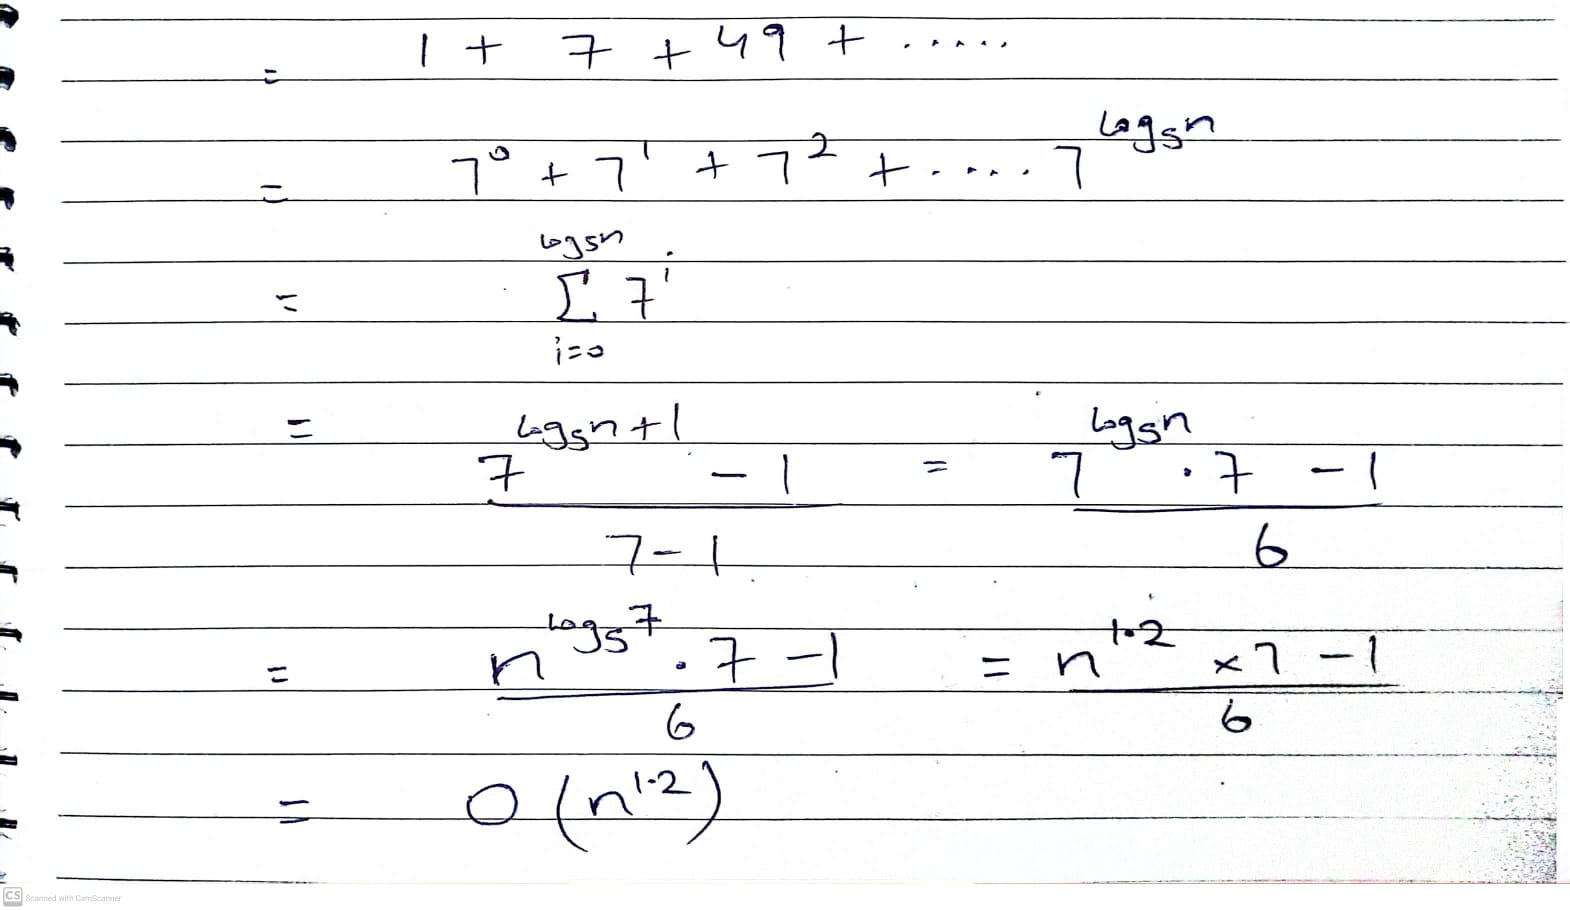 = 1 + 7 + 49 + .....
= 7⁰ + 7¹ + 7² + ..... 7^(log₅n)
= Σ_(i=0)^(log₅n) 7^i
= (7^(log₅n+1) - 1) / (7-1) = (7^(log₅n) · 7 - 1) / 6
= (n^(log₅7) · 7 - 1) / 6 = (n^(1.2) × 7 - 1) / 6
= O (n^(1.2))
CS Scanned with CamScanner